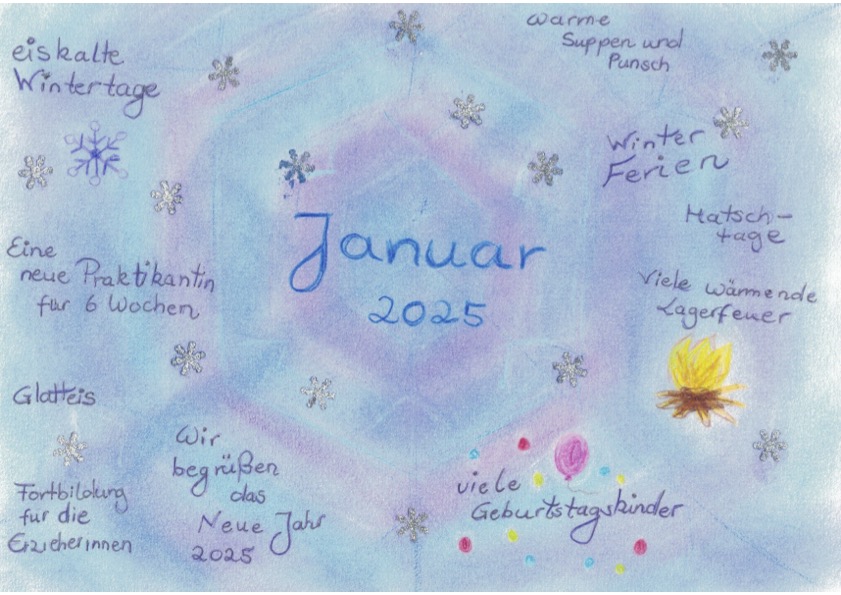 eiskalte
Wintertage
warme
Suppen und
Punsch
Winter
Ferien
Matsch-
tage
Januar
2025
Eine
neue Praktikantin
für 6 Wochen
Viele wärmende
Lagerfeuer
Glatteis
Wir
begrüßen
das
Neue Jahr
2025
viele
Geburtstagskinder
Fortbildung
für die
Erzieherinnen